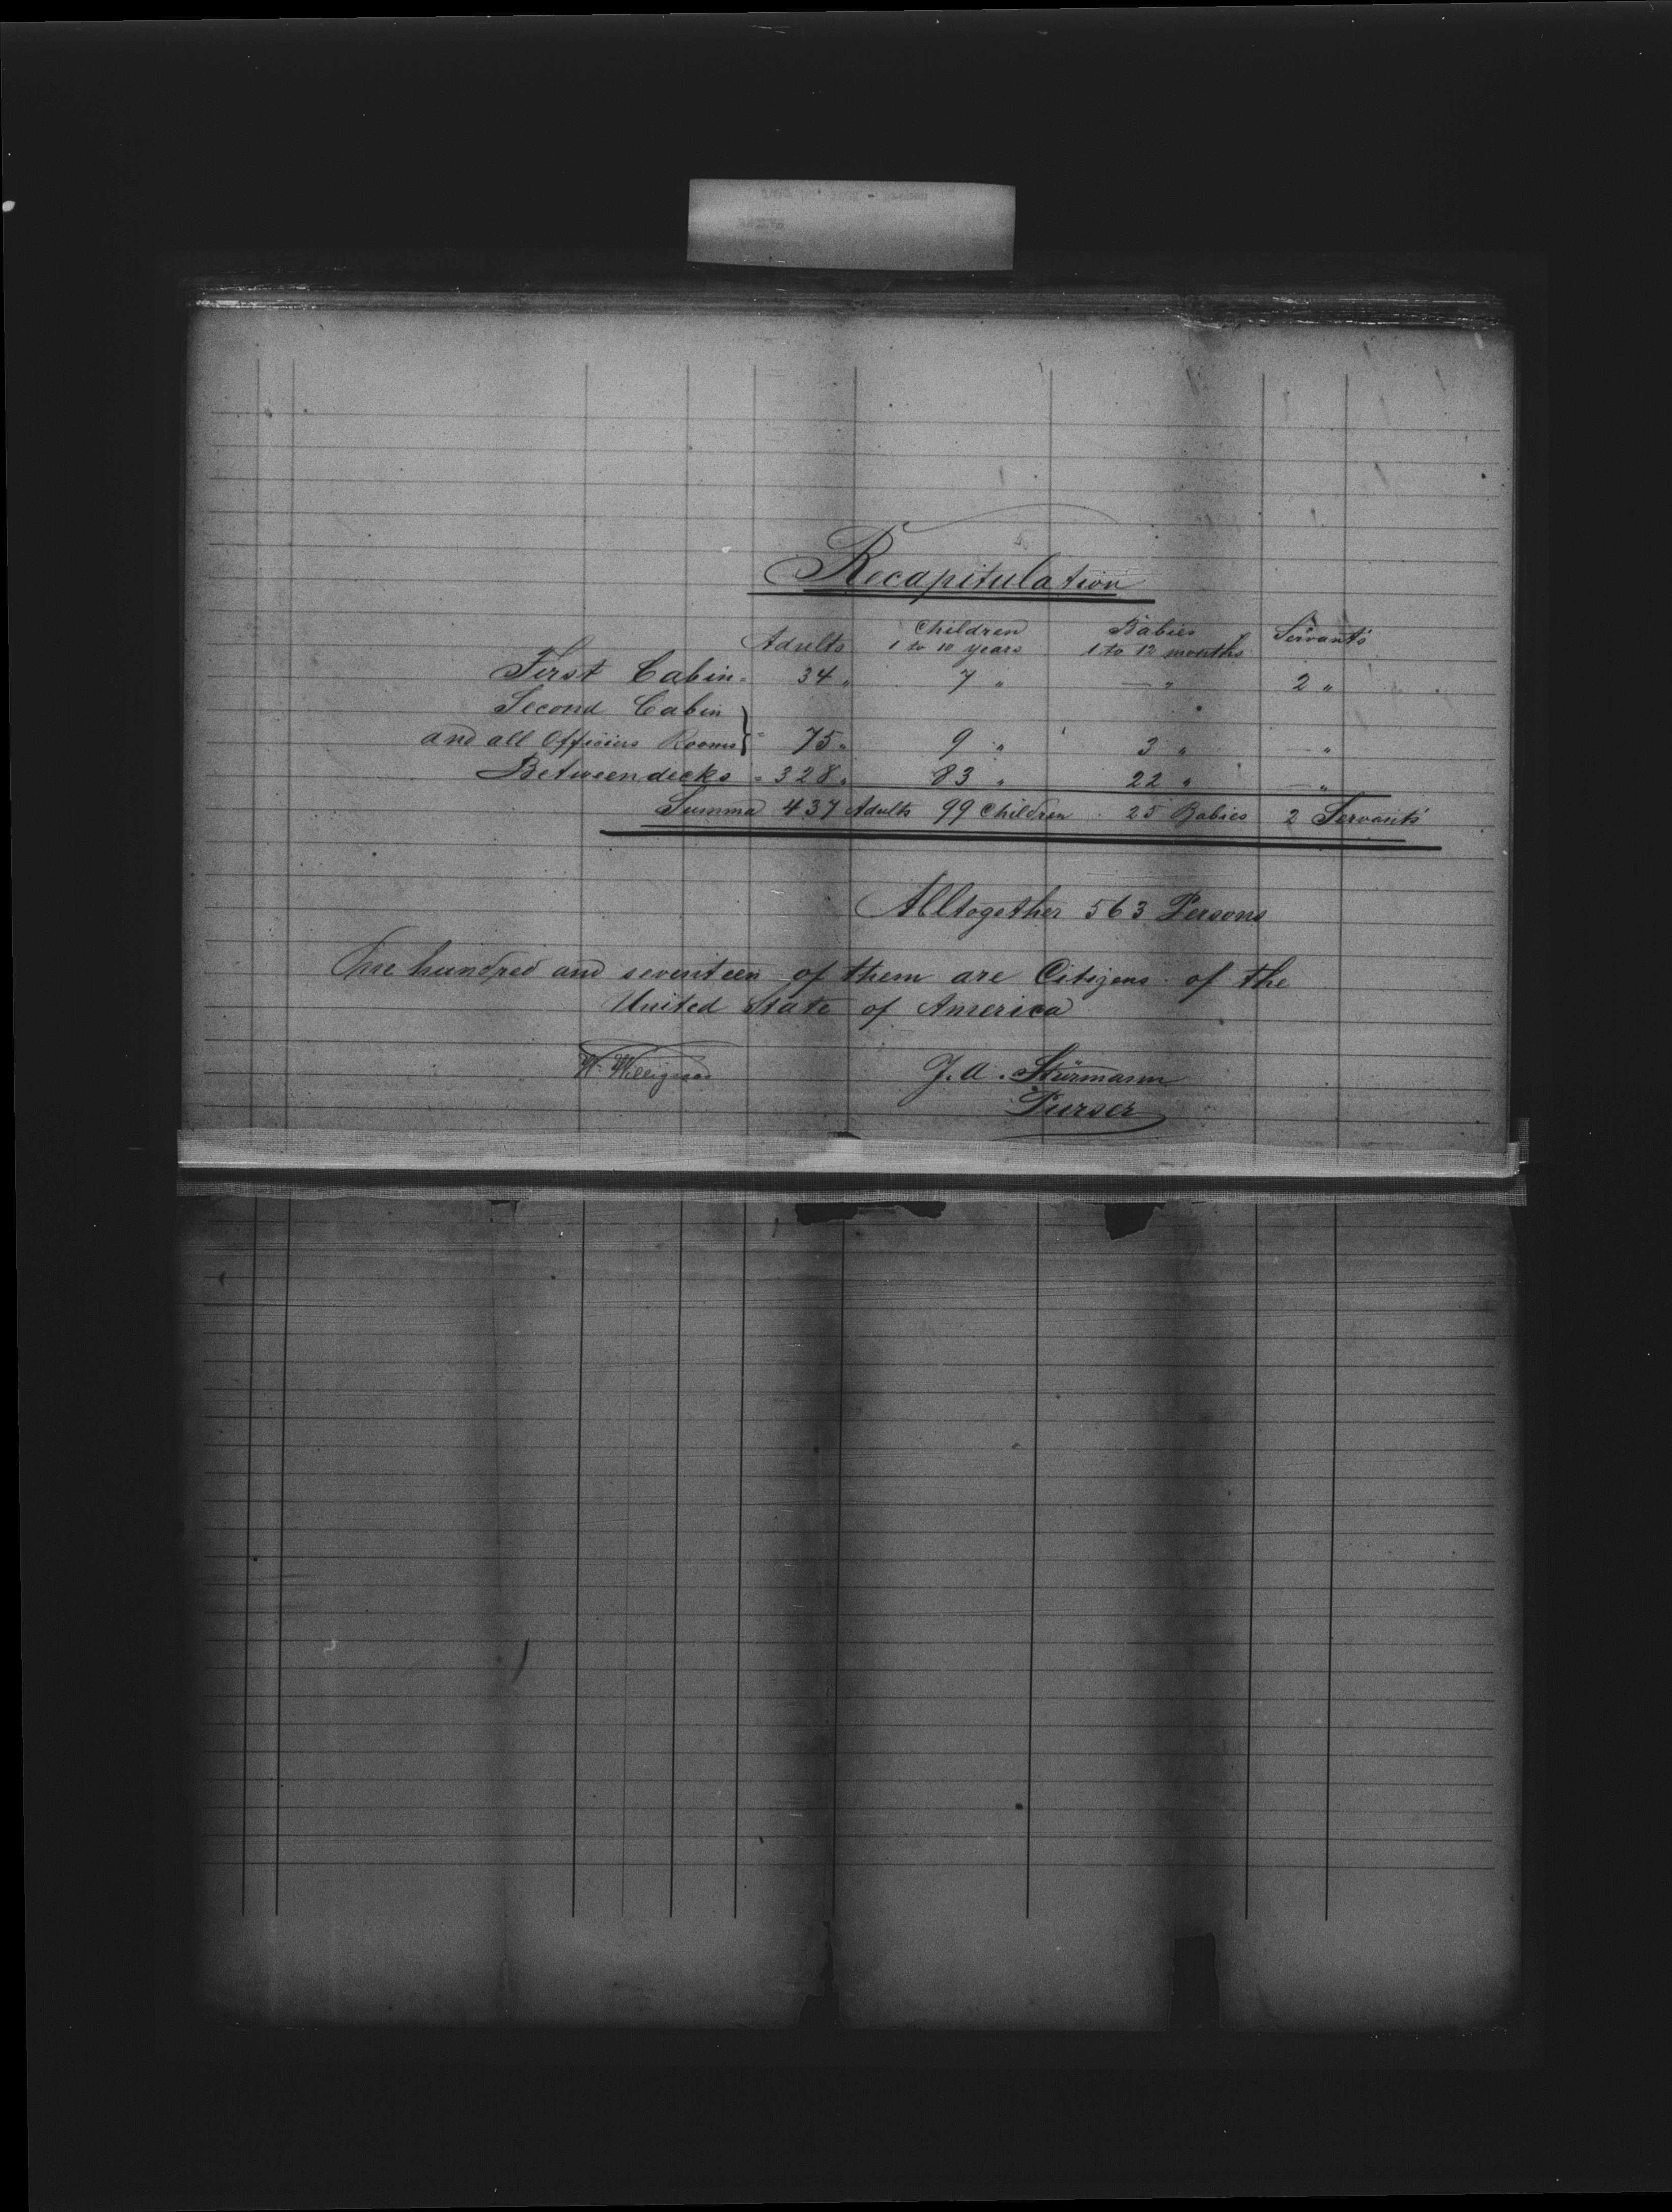 Recapitulation
Adults Children 1 to 10 years Babies 1 to 12 months Servants
First Cabin = 34 " 7 " — " 2 "
Second Cabin
and all Officiers Rooms } = 75 " 9 " 3 " — "
Betweendecks = 328 " 83 " 22 " — "
Summa 437 Adults 99 Children 25 Babies 2 Servants
Alltogether 563 Persons
One hundred and seventeen of them are Citizens of the
United State of America
J. A. Stürmann
Purser